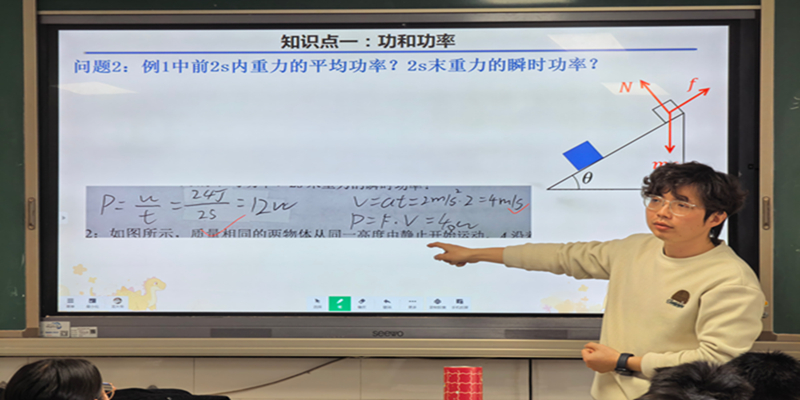 知识点一：功和功率
问题2：例1中前2s内重力的平均功率？2s末重力的瞬时功率？
N
f
θ
P=W/t=24J/2s=12W
V=at=2m/s²·2=4m/s
P=F·V=40W
2：如图所示，质量相同的两物体从同一高度由静止开始运动，A沿
seewo